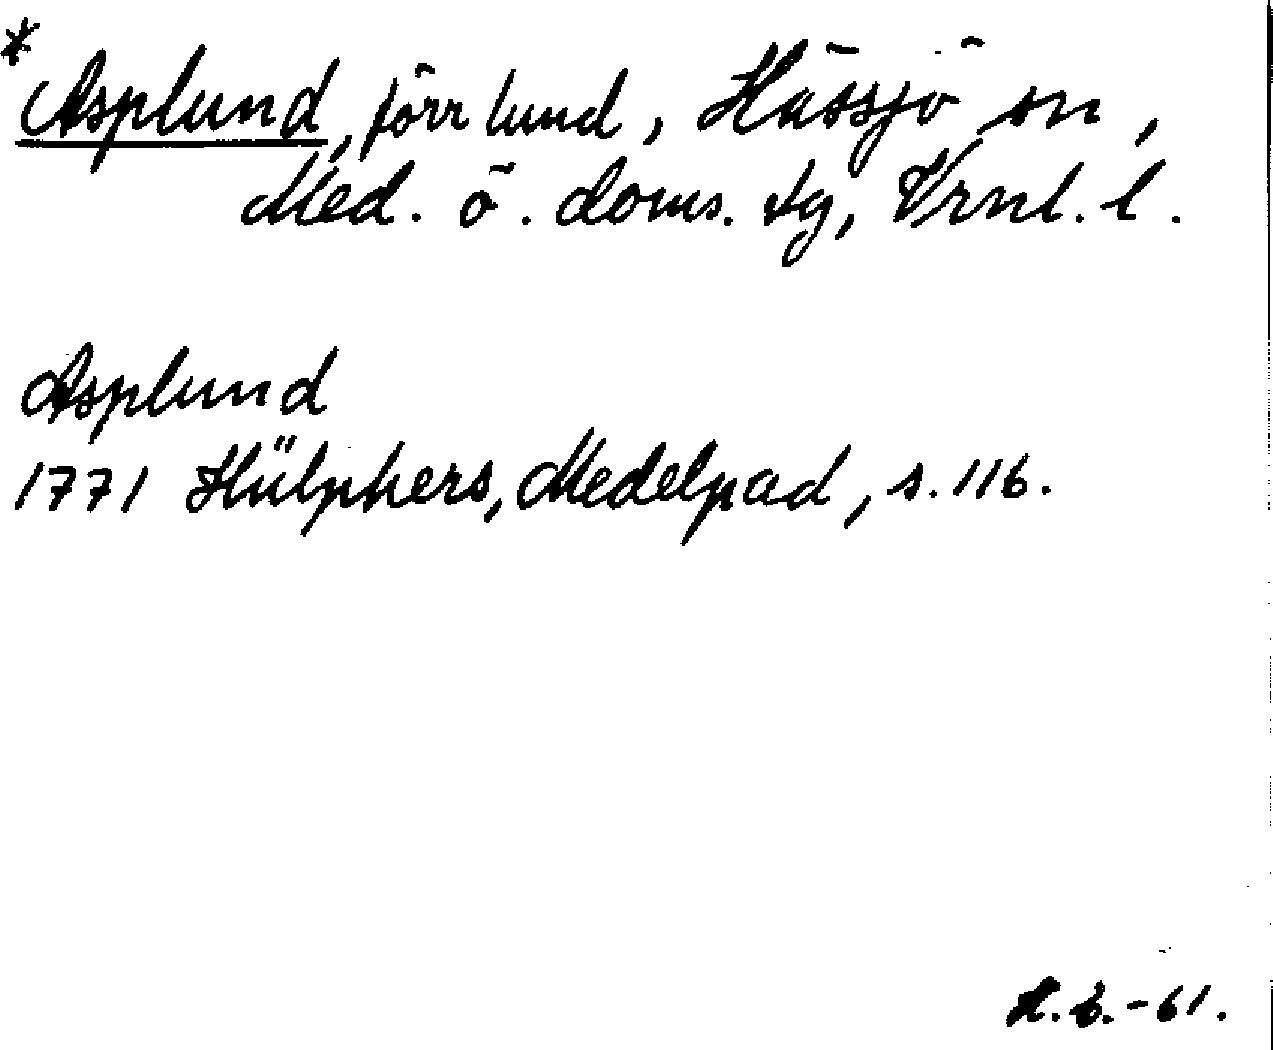 * Asplund, förr lund, Hässjö sn,
Med. ö. doms. tg, Vrnl. l.
Asplund
1771 Hülphers, Medelpad, s. 116.
-61.